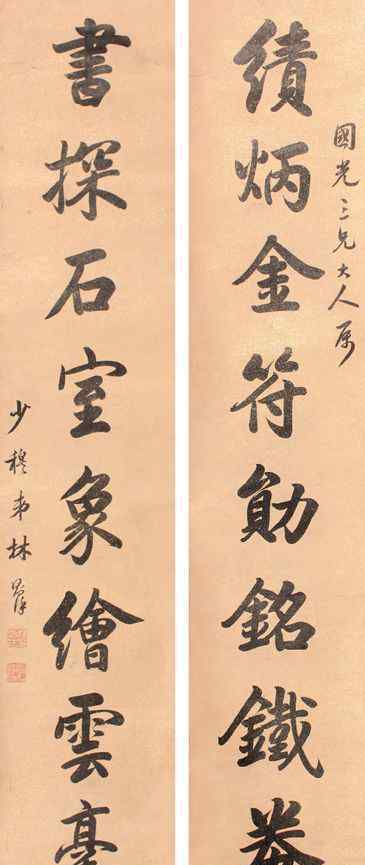 國光三兄大人属
績炳金符勛銘鐵券
書探石室象繪雲臺
少穆弟林則徐